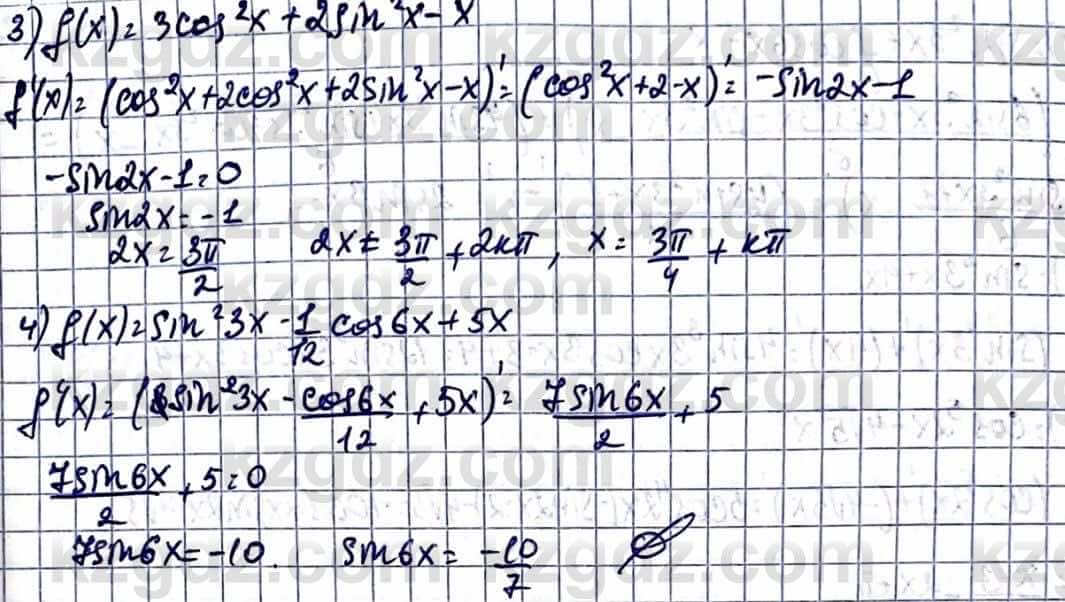 3) f(x) = 3cos²x + 2sin²x - x
f'(x) = (cos²x + 2cos²x + 2sin²x - x)' = (cos²x + 2 - x)' = -sin2x - 1
-sin2x - 1 = 0
sin2x = -1
2x = 3π/2    2x = 3π/2 + 2kπ, x = 3π/4 + kπ
4) f(x) = sin²3x - 1/12 cos6x + 5x
f'(x) = (sin²3x - cos6x/12 + 5x)' = 7sin6x/2 + 5
7sin6x/2 + 5 = 0
7sin6x = -10.    sin6x = -10/7    ∅
kzgdz.com